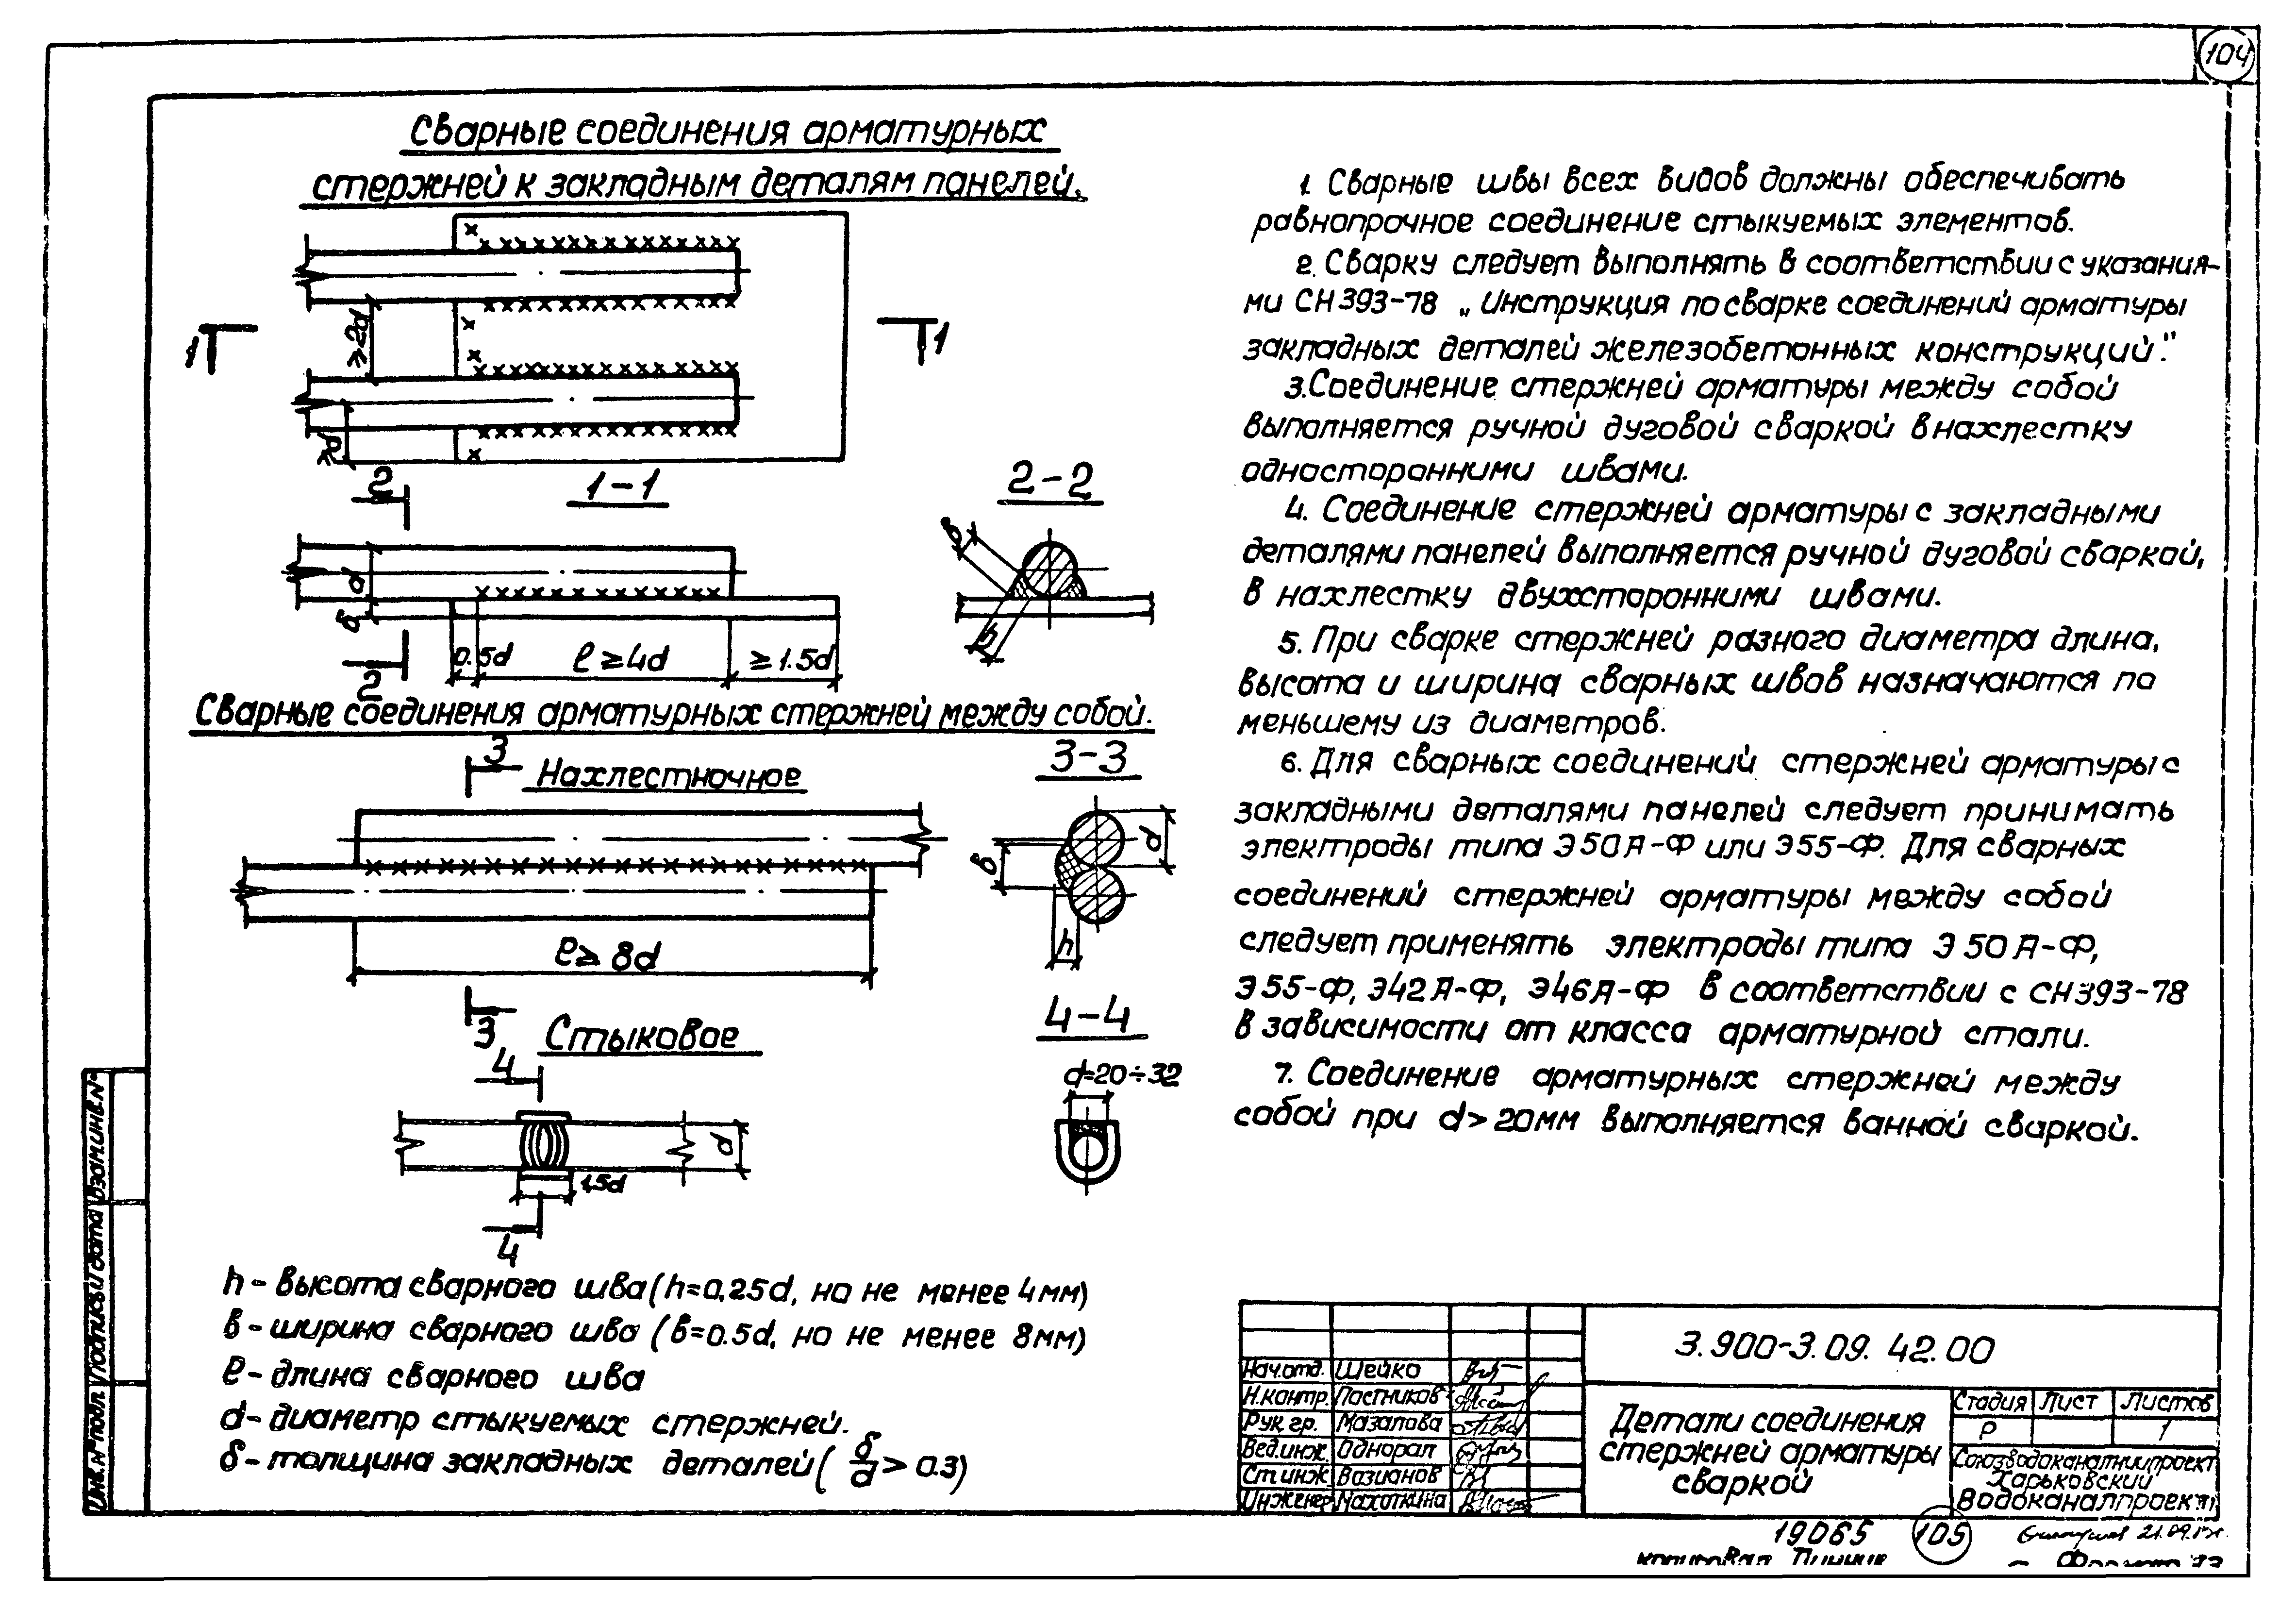 104
Сварные соединения арматурных
стержней к закладным деталям панелей.
≥2d
1
1
≥d
2
1-1
2-2
d
δ
в
h
0.5d
ℓ≥4d
≥1.5d
2
Сварные соединения арматурных стержней между собой.
3
Нахлесточное
3-3
d
в
h
ℓ≥8d
3
Стыковое
4-4
4
d=20÷32
d
1,5d
4
h - высота сварного шва (h=0,25d, но не менее 4мм)
в - ширина сварного шва (в=0.5d, но не менее 8мм)
ℓ - длина сварного шва
d - диаметр стыкуемых стержней.
δ - толщина закладных деталей (δ/d > 0.3)
1. Сварные швы всех видов должны обеспечивать
равнопрочное соединение стыкуемых элементов.
2. Сварку следует выполнять в соответствии с указания-
ми СН 393-78 „Инструкция по сварке соединений арматуры
закладных деталей железобетонных конструкций."
3. Соединение стержней арматуры между собой
выполняется ручной дуговой сваркой внахлестку
односторонними швами.
4. Соединение стержней арматуры с закладными
деталями панелей выполняется ручной дуговой сваркой,
в нахлестку двухсторонними швами.
5. При сварке стержней разного диаметра длина,
высота и ширина сварных швов назначаются по
меньшему из диаметров.
6. Для сварных соединений стержней арматуры с
закладными деталями панелей следует принимать
электроды типа Э50А-Ф или Э55-Ф. Для сварных
соединений стержней арматуры между собой
следует применять электроды типа Э50А-Ф,
Э55-Ф, Э42А-Ф, Э46А-Ф в соответствии с СН 393-78
в зависимости от класса арматурной стали.
7. Соединение арматурных стержней между
собой при d>20мм выполняется ванной сваркой.
Взам.инв.№
Подпись и дата
Инв.№ подл.
3.900-3.09.42.00
Нач.отд. Шейко
Н.контр. Постников
Рук.гр. Мазалова
Вед.инж. Однорал
Ст.инж. Вазианов
Инженер Махоткина
Детали соединения
стержней арматуры
сваркой
Стадия Лист Листов
Р 1
Союзводоканалниипроект
Харьковский
Водоканалпроект
19065 105
21.09.
копировал
Формат